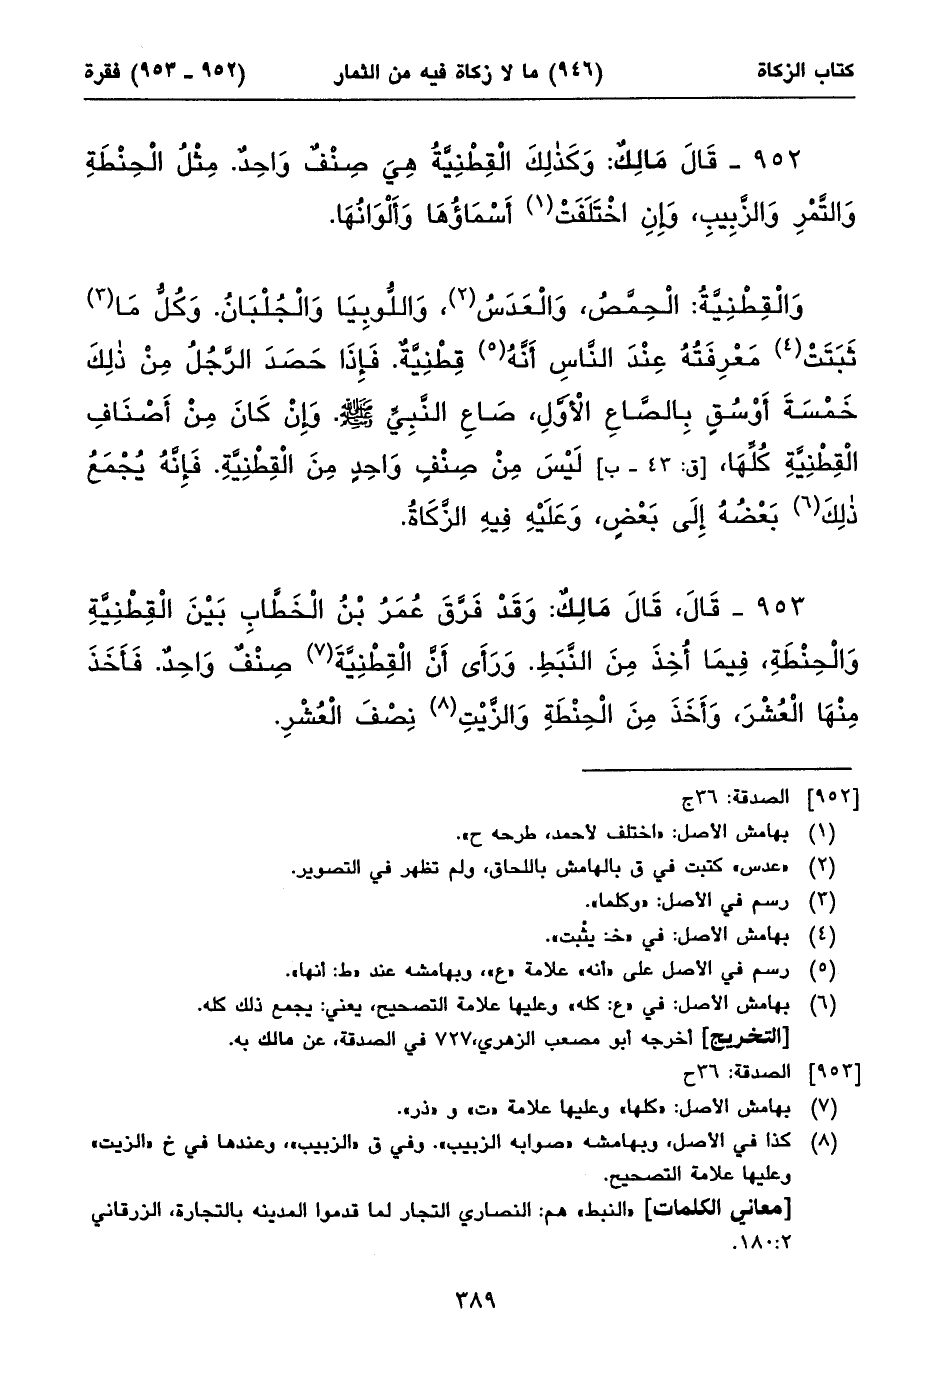 كتاب الزكاة (٩٤٦) ما لا زكاة فيه من الثمار (٩٥٢ ـ ٩٥٣) فقرة
٩٥٢ ـ قَالَ مَالِكٌ: وَكَذٰلِكَ الْقِطْنِيَّةُ هِيَ صِنْفٌ وَاحِدٌ. مِثْلُ الْحِنْطَةِ
وَالتَّمْرِ وَالزَّبِيبِ، وَإِنِ اخْتَلَفَتْ(١) أَسْمَاؤُهَا وَأَلْوَانُهَا.
وَالْقِطْنِيَّةُ: الْحِمَّصُ، وَالْعَدَسُ(٢)، وَاللُّوبِيَا وَالْجُلْبَانُ. وَكُلُّ مَا(٣)
ثَبَتَتْ(٤) مَعْرِفَتُهُ عِنْدَ النَّاسِ أَنَّهُ(٥) قِطْنِيَّةٌ. فَإِذَا حَصَدَ الرَّجُلُ مِنْ ذٰلِكَ
خَمْسَةَ أَوْسُقٍ بِالصَّاعِ الْأَوَّلِ، صَاعِ النَّبِيِّ ﷺ. وَإِنْ كَانَ مِنْ أَصْنَافِ
الْقِطْنِيَّةِ كُلِّهَا، [ق: ٤٣ ـ ب] لَيْسَ مِنْ صِنْفٍ وَاحِدٍ مِنَ الْقِطْنِيَّةِ. فَإِنَّهُ يُجْمَعُ
ذٰلِكَ(٦) بَعْضُهُ إِلَى بَعْضٍ، وَعَلَيْهِ فِيهِ الزَّكَاةُ.
٩٥٣ ـ قَالَ، قَالَ مَالِكٌ: وَقَدْ فَرَّقَ عُمَرُ بْنُ الْخَطَّابِ بَيْنَ الْقِطْنِيَّةِ
وَالْحِنْطَةِ، فِيمَا أُخِذَ مِنَ النَّبَطِ. وَرَأَى أَنَّ الْقِطْنِيَّةَ(٧) صِنْفٌ وَاحِدٌ. فَأَخَذَ
مِنْهَا الْعُشْرَ، وَأَخَذَ مِنَ الْحِنْطَةِ وَالزَّيْتِ(٨) نِصْفَ الْعُشْرِ.
[٩٥٢] الصدقة: ٣٦ج
(١) بهامش الأصل: «اختلف لأحمد، طرحه ح».
(٢) «عدس» كتبت في ق بالهامش باللحاق، ولم تظهر في التصوير.
(٣) رسم في الأصل: «وكلما».
(٤) بهامش الأصل: في «خـ: يثْبت».
(٥) رسم في الأصل على «أنه» علامة «ع»، وبهامشه عند «ط: أنها».
(٦) بهامش الأصل: في «ع: كله» وعليها علامة التصحيح، يعني: يجمع ذلك كله.
[التخريج] أخرجه أبو مصعب الزهري، ٧٢٧ في الصدقة، عن مالك به.
[٩٥٣] الصدقة: ٣٦ح
(٧) بهامش الأصل: «كلها» وعليها علامة «ت» و «ذر».
(٨) كذا في الأصل، وبهامشه «صوابه الزبيب». وفي ق «الزبيب»، وعندها في خ «الزيت»
وعليها علامة التصحيح.
[معاني الكلمات] «النبط» هم: النصاري التجار لما قدموا المدينه بالتجارة، الزرقاني
١٨٠:٢.
٣٨٩